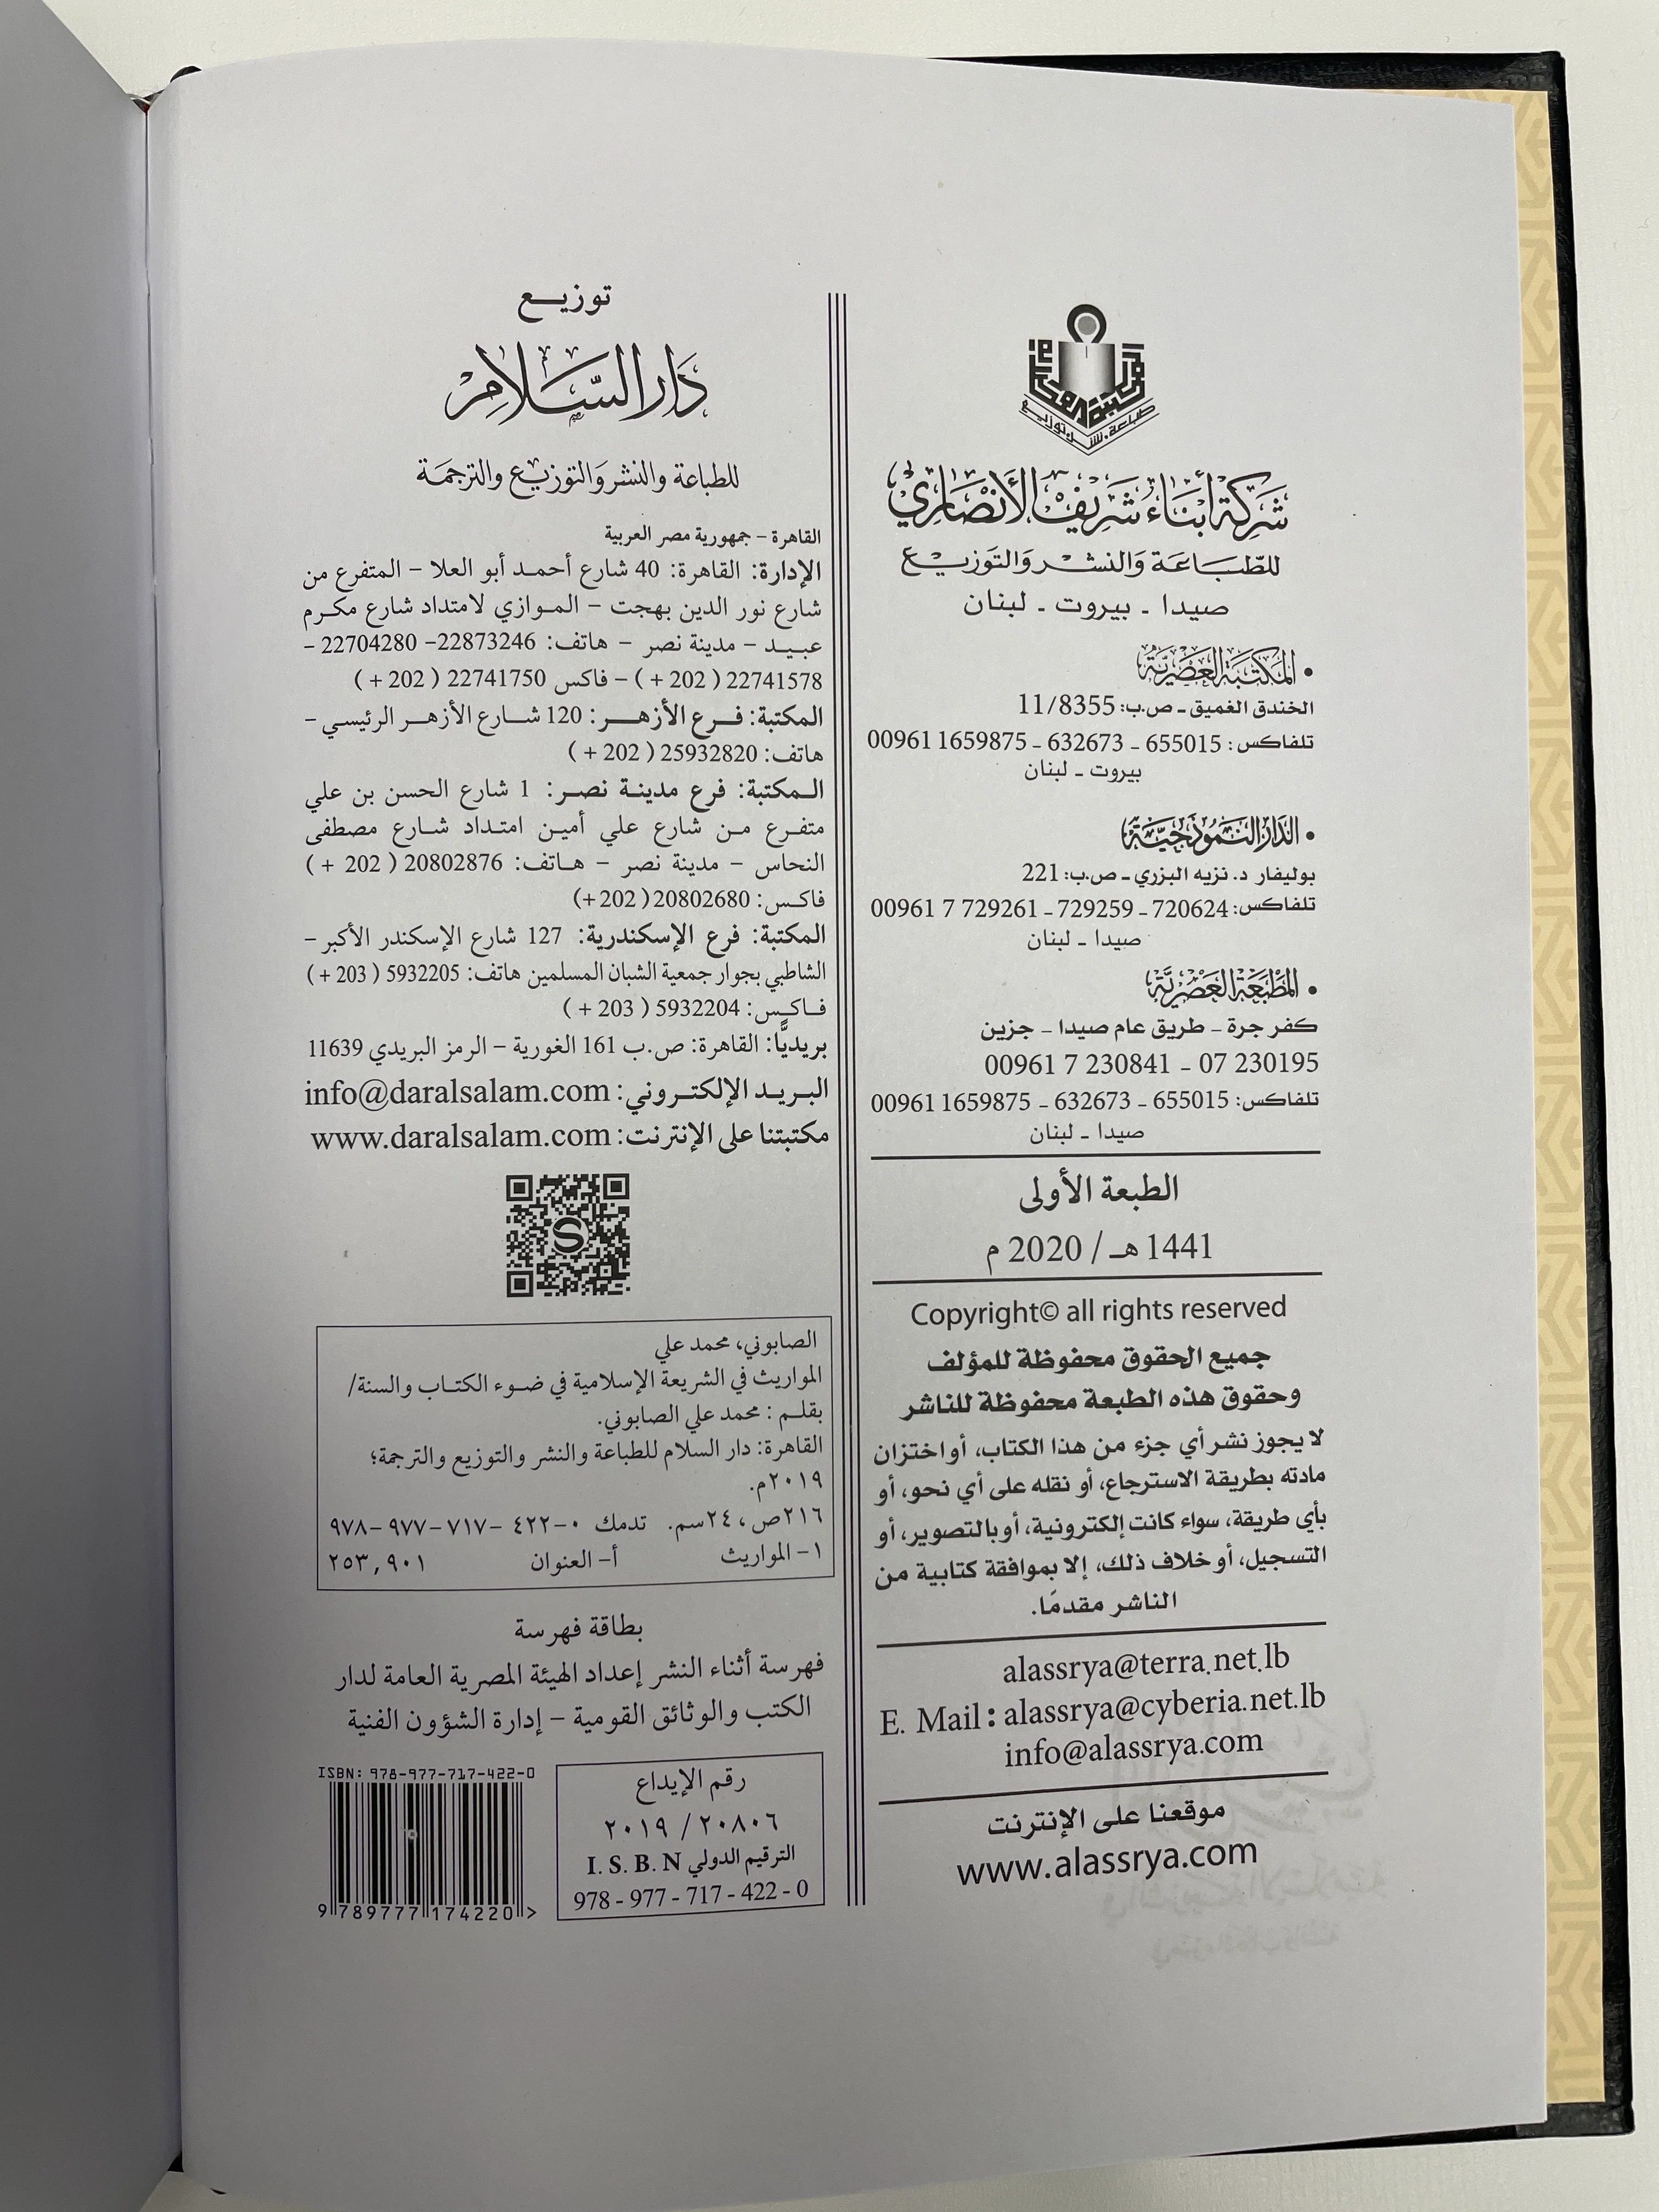 المكتبة العصرية
طباعة. نشر. توزيع
شركة أبناء شريف الأنصاري
للطباعة والنشر والتوزيع
صيدا ـ بيروت ـ لبنان
• المكتبة العصرية
الخندق الغميق ـ ص.ب: 11/8355
تلفاكس: 655015 ـ 632673 ـ 1659875 00961
بيروت ـ لبنان
• الدار النموذجية
بوليفار د. نزيه البزري ـ ص.ب: 221
تلفاكس: 720624 ـ 729259 ـ 729261 7 00961
صيدا ـ لبنان
• المطبعة العصرية
كفر جرة ـ طريق عام صيدا ـ جزين
00961 7 230841 - 07 230195
تلفاكس: 655015 ـ 632673 ـ 1659875 00961
صيدا ـ لبنان
الطبعة الأولى
1441 هـ / 2020 م
Copyright© all rights reserved
جميع الحقوق محفوظة للمؤلف
وحقوق هذه الطبعة محفوظة للناشر
لا يجوز نشر أي جزء من هذا الكتاب، أو اختزان
مادته بطريقة الاسترجاع، أو نقله على أي نحو، أو
بأي طريقة، سواء كانت إلكترونية، أو بالتصوير، أو
التسجيل، أو خلاف ذلك، إلا بموافقة كتابية من
الناشر مقدمًا.
alassrya@terra.net.lb
E. Mail: alassrya@cyberia.net.lb
info@alassrya.com
موقعنا على الإنترنت
www.alassrya.com
توزيع
دار السلام
للطباعة والنشر والتوزيع والترجمة
القاهرة – جمهورية مصر العربية
الإدارة: القاهرة: 40 شارع أحمد أبو العلا – المتفرع من
شارع نور الدين بهجت – الموازي لامتداد شارع مكرم
عبيد – مدينة نصر – هاتف: 22873246 – 22704280 –
22741578 ( 202 + ) – فاكس 22741750 ( 202 + )
المكتبة: فرع الأزهر: 120 شارع الأزهر الرئيسي –
هاتف: 25932820 ( 202 + )
المكتبة: فرع مدينة نصر: 1 شارع الحسن بن علي
متفرع من شارع علي أمين امتداد شارع مصطفى
النحاس – مدينة نصر – هاتف: 20802876 ( 202 + )
فاكس: 20802680 ( 202 +)
المكتبة: فرع الإسكندرية: 127 شارع الإسكندر الأكبر –
الشاطبي بجوار جمعية الشبان المسلمين هاتف: 5932205 ( 203 + )
فاكس: 5932204 ( 203 + )
بريديًّا: القاهرة: ص.ب 161 الغورية – الرمز البريدي 11639
البريد الإلكتروني: info@daralsalam.com
مكتبتنا على الإنترنت: www.daralsalam.com
الصابوني، محمد علي
المواريث في الشريعة الإسلامية في ضوء الكتاب والسنة/
بقلم : محمد علي الصابوني.
القاهرة: دار السلام للطباعة والنشر والتوزيع والترجمة؛
٢٠١٩م.
٢١٦ص، ٢٤سم. تدمك ٠-٤٢٢ -٧١٧-٩٧٧-٩٧٨
١- المواريث أ- العنوان ٢٥٣,٩٠١
بطاقة فهرسة
فهرسة أثناء النشر إعداد الهيئة المصرية العامة لدار
الكتب والوثائق القومية – إدارة الشؤون الفنية
رقم الإيداع
٢٠٨٠٦ / ٢٠١٩
الترقيم الدولي I. S. B. N
978 - 977 - 717 - 422 - 0
ISBN: 978-977-717-422-0
9 789777 174220 >